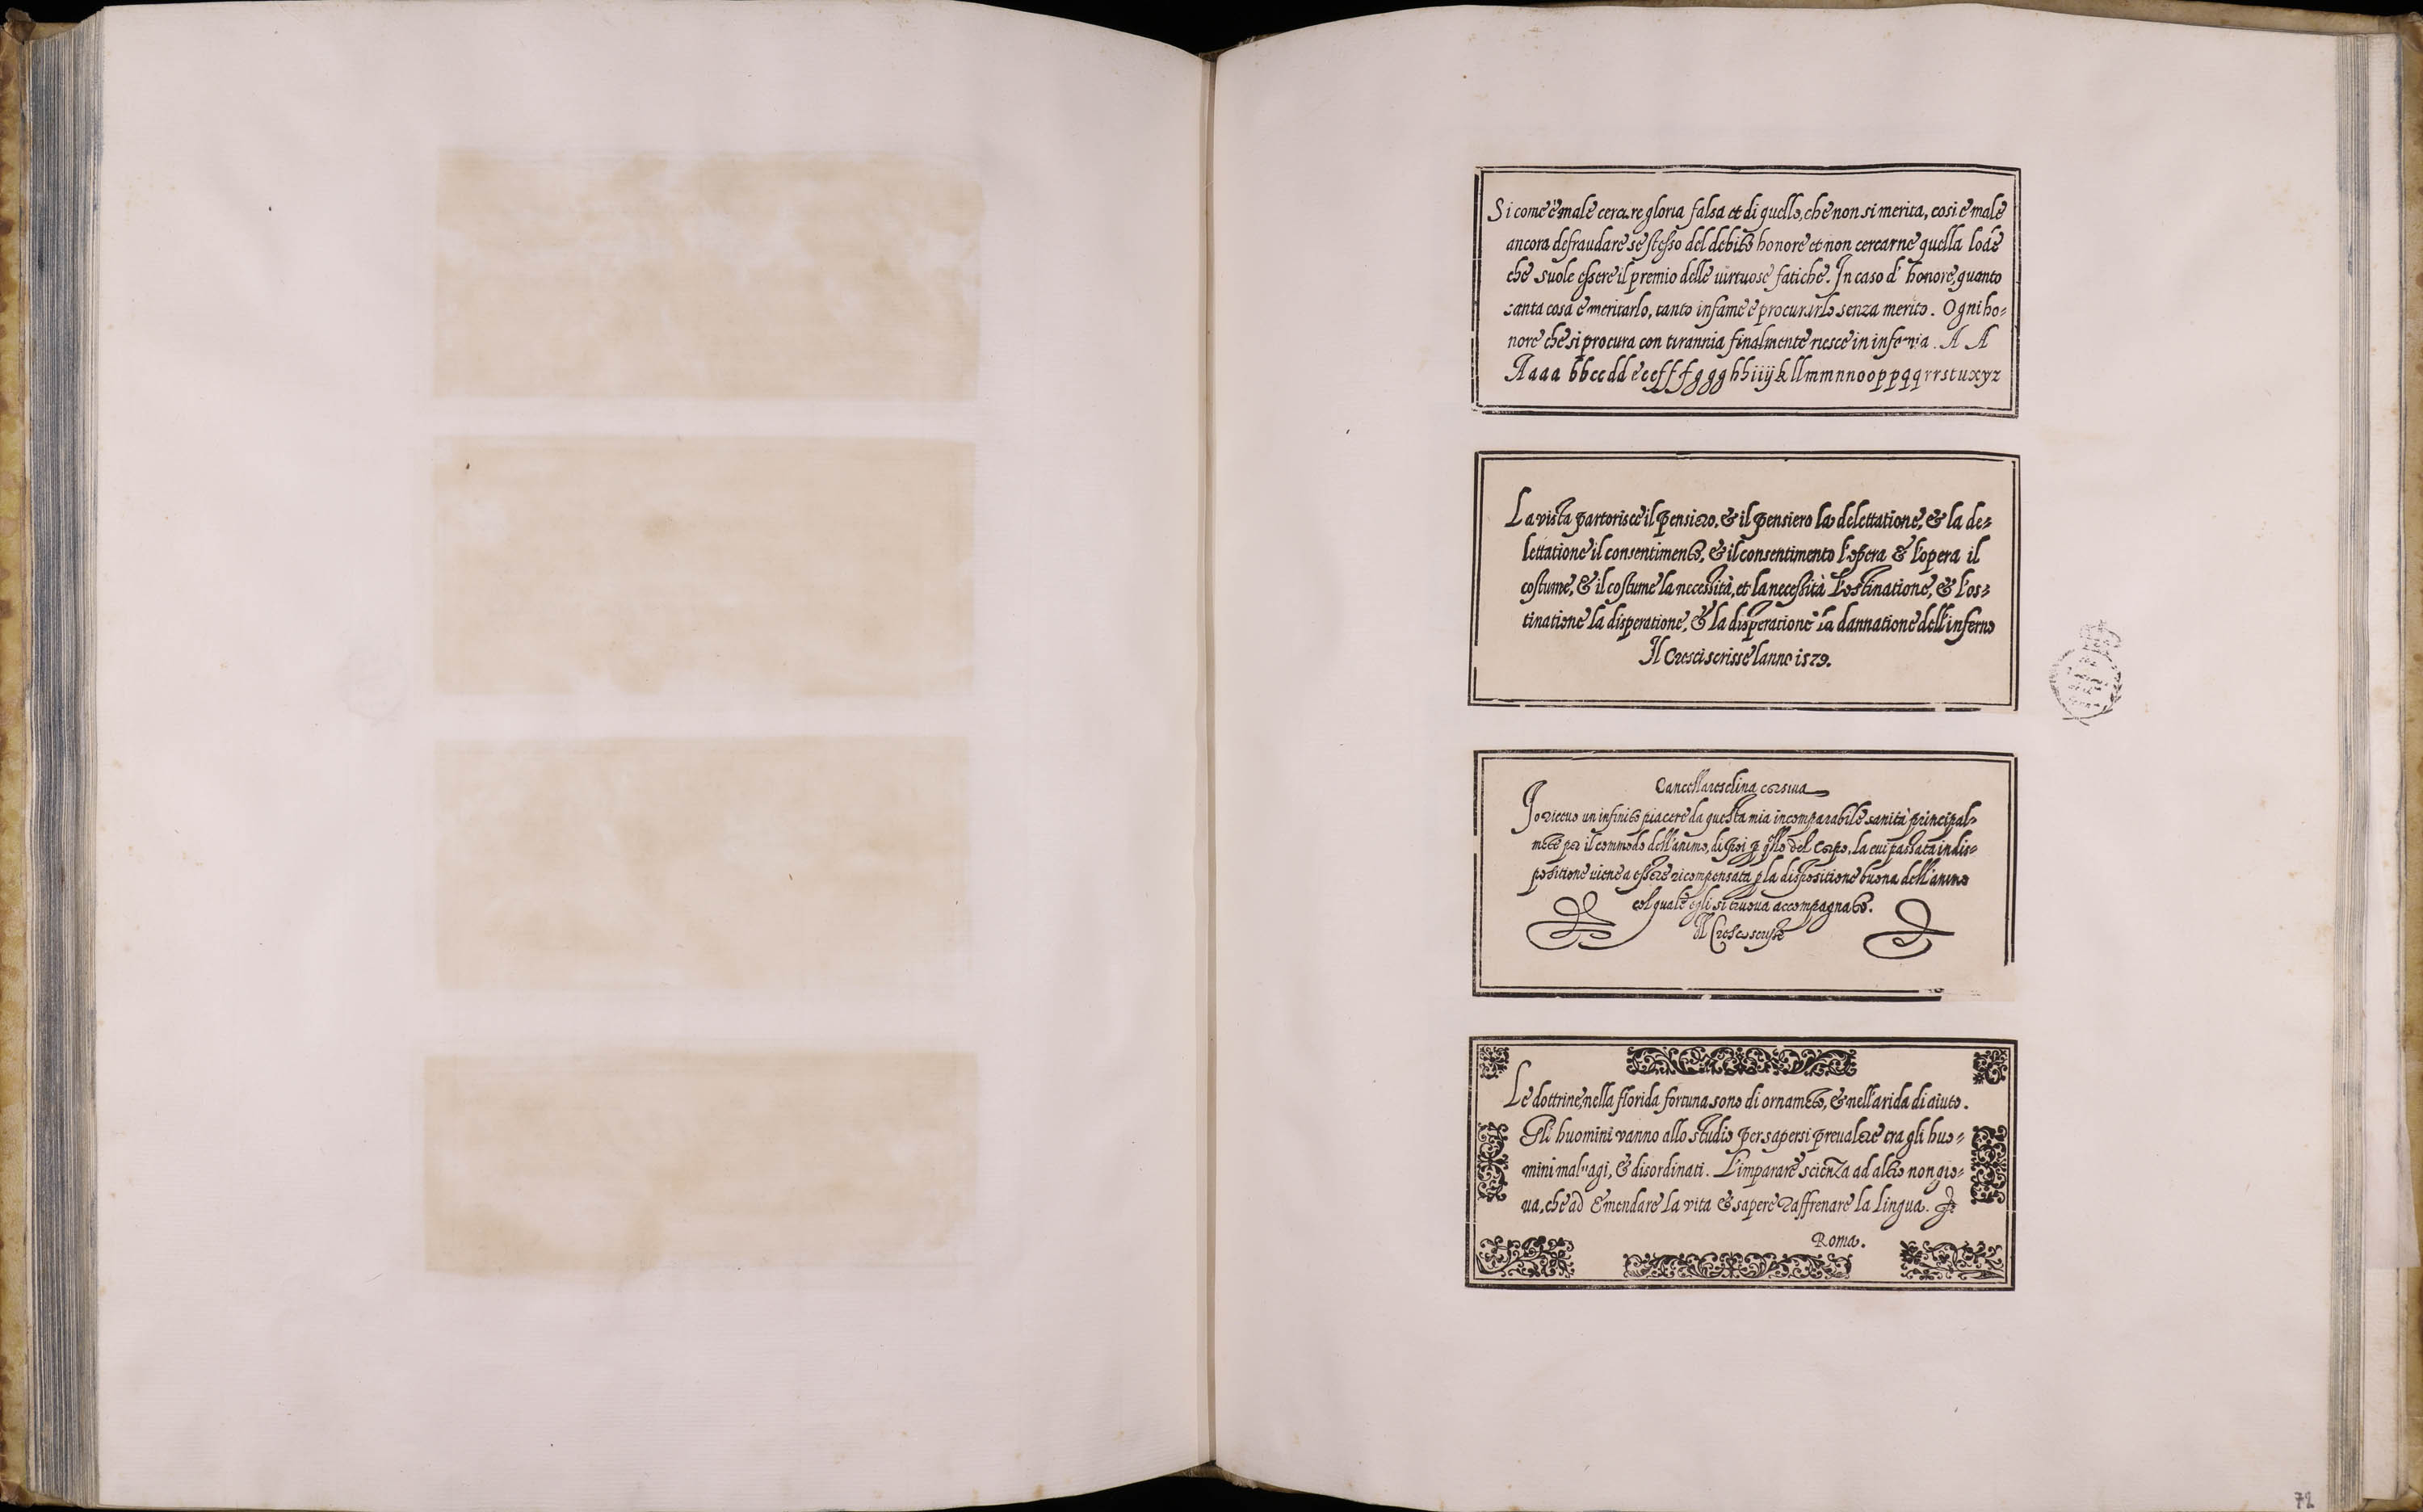 Si come è male cercare gloria falsa et di quello, che non si merita, cosi è male
ancora defraudare se stesso del debito honore et non cercarne quella lode
che suole essere il premio delle uirtuose fatiche. In caso d'honore, quanto
santa cosa è meritarlo, tanto infame è procurarlo senza merito. Ogni ho=
nore che si procura con tirannia finalmente riesce in infamia. A A
A a a a b b c c d d e e e f f f g g g h h i i ij k l l m m n n o o p p q q r r s t u x y z
La vista partorisce il pensiero, & il pensiero la delettatione, & la de=
lettatione il consentimento, & il consentimento l'opera & l'opera il
costume, & il costume la necessità, et la necessità l'ostinatione, & l'os=
tinatione la disperatione, & la disperatione la dannatione dell'inferno
Il Cresci scrisse l'anno 1579.
Cancellaresch ina corsiua
Io riceuo un infinito piacere da questa mia incomparabile sanità principal=
mẽte per il commodo dell'animo, dipoi p̱ q̃llo del corpo, la cui passata indis=
positione uiene a essere ricompensata p̱ la dispositione buona dell'animo
col quale egli si truoua accompagnato.
Il Cresci scrisse
Le dottrine, nella florida fortuna sono di ornamẽto, & nell'arida di aiuto.
Gli huomini vanno allo studio per sapersi preualere tra gli huo=
mini maluagi, & disordinati. L'imparare scienza ad altro non gio=
ua, che ad emendare la vita & sapere raffrenare la lingua.
Roma.
72